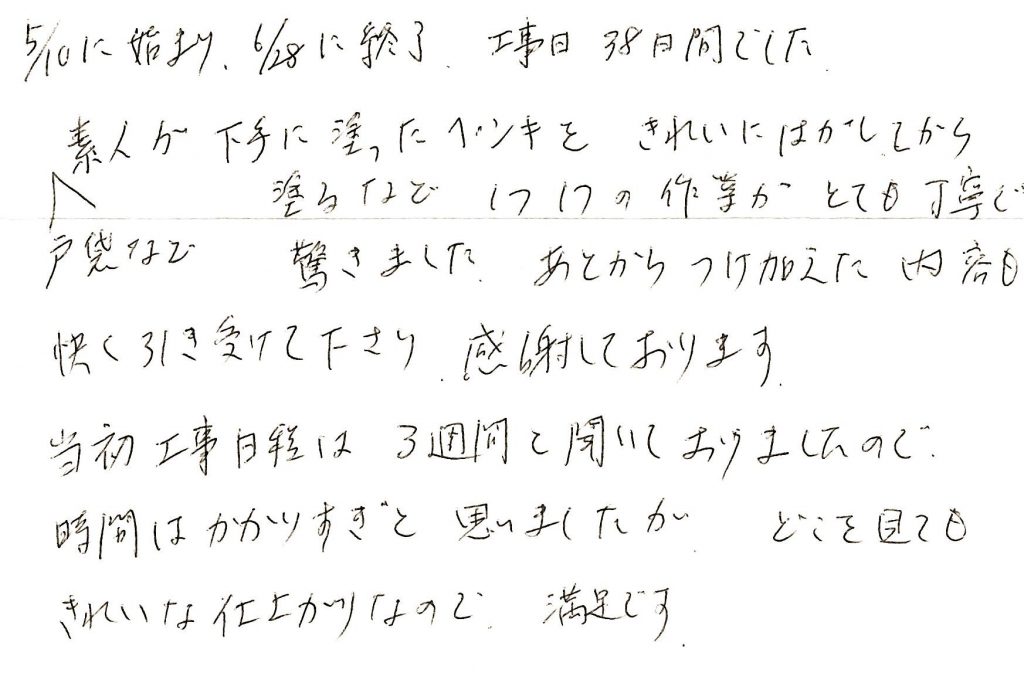 5/10に始まり、6/28に終了、工事日 38日間でした。
素人が下手に塗ったペンキを きれいにはがしてから
塗るなど 1つ1つの作業がとても丁寧で
戸袋など 驚きました。あとからつけ加えた内容も
快く引き受けて下さり、感謝しております。
当初工事日程は 3週間と聞いておりましたので、
時間はかかりすぎと思いましたが、どこを見ても
きれいな仕上がりなので、満足です。